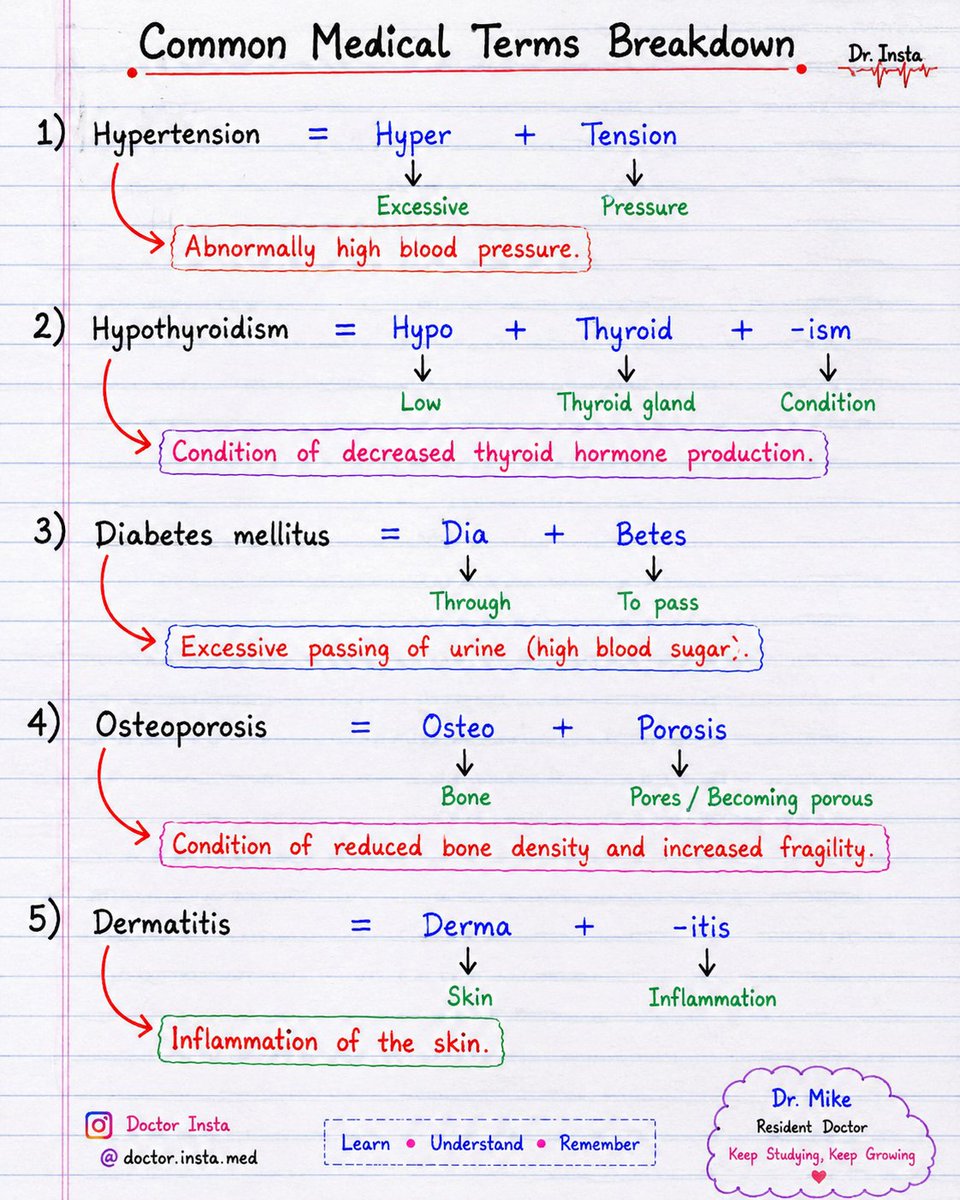 Common Medical Terms Breakdown
Dr. Insta
1) Hypertension = Hyper + Tension
Excessive Pressure
Abnormally high blood pressure.
2) Hypothyroidism = Hypo + Thyroid + -ism
Low Thyroid gland Condition
Condition of decreased thyroid hormone production.
3) Diabetes mellitus = Dia + Betes
Through To pass
Excessive passing of urine (high blood sugar).
4) Osteoporosis = Osteo + Porosis
Bone Pores / Becoming porous
Condition of reduced bone density and increased fragility.
5) Dermatitis = Derma + -itis
Skin Inflammation
Inflammation of the skin.
Doctor Insta
@ doctor.insta.med
Learn • Understand • Remember
Dr. Mike
Resident Doctor
Keep Studying, Keep Growing